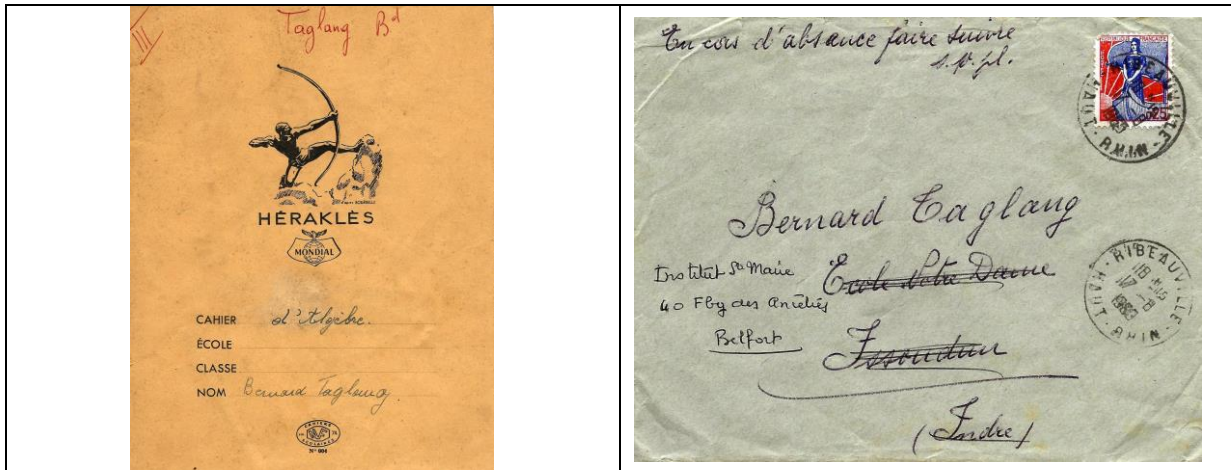 III
Taglang Bd
HÉRAKLÈS
MONDIAL
CAHIER d'Algèbre.
ÉCOLE
CLASSE
NOM Bernard Taglang
N° 604
En cas d'absence faire suivre
s.v.pl.
RÉPUBLIQUE FRANÇAISE
0,25
RIBEAUVILLE
HAUT - RHIN
Bernard Taglang
Institut Ste Marie
Ecole Notre Dame
40 Fbg des Ancêtres
Belfort
Issoudun
(Indre)
RIBEAUVILLE
18
17 - 8
1960
HAUT - RHIN